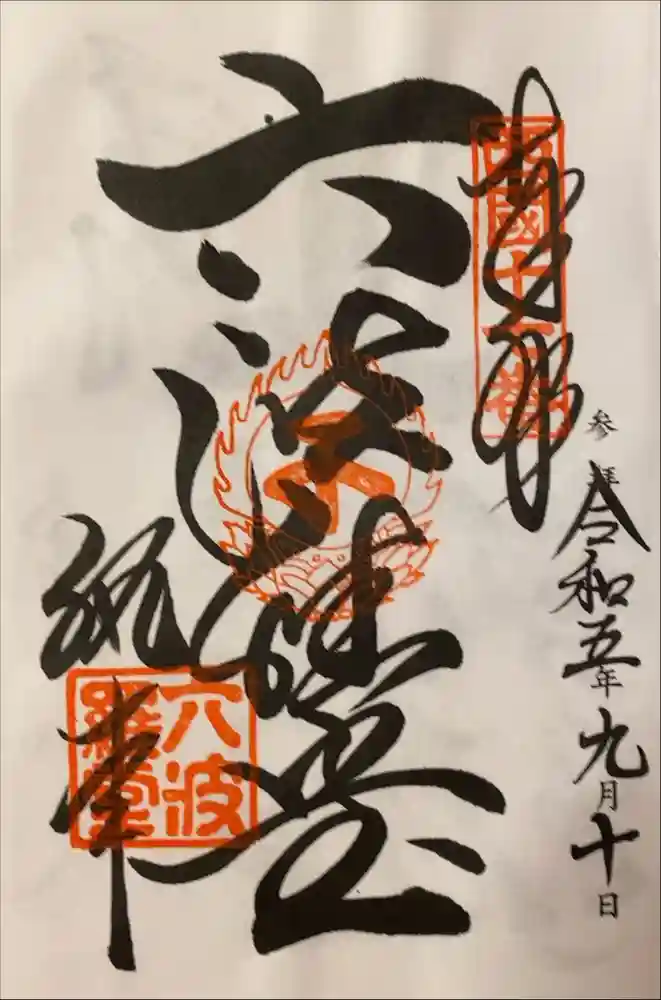 奉拝
西國十七番
参拝 令和五年九月十日
六波羅堂
六波
羅堂